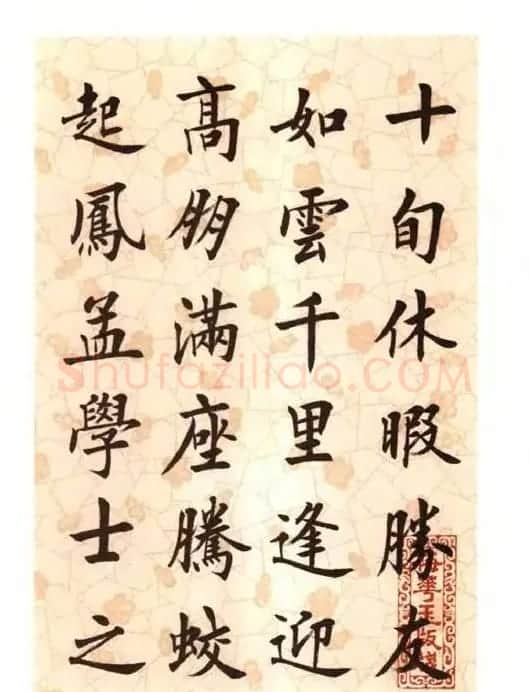 十旬休暇勝友
如雲千里逢迎
髙朋滿座騰蛟
起鳳孟學士之
Shufaziliao.COM